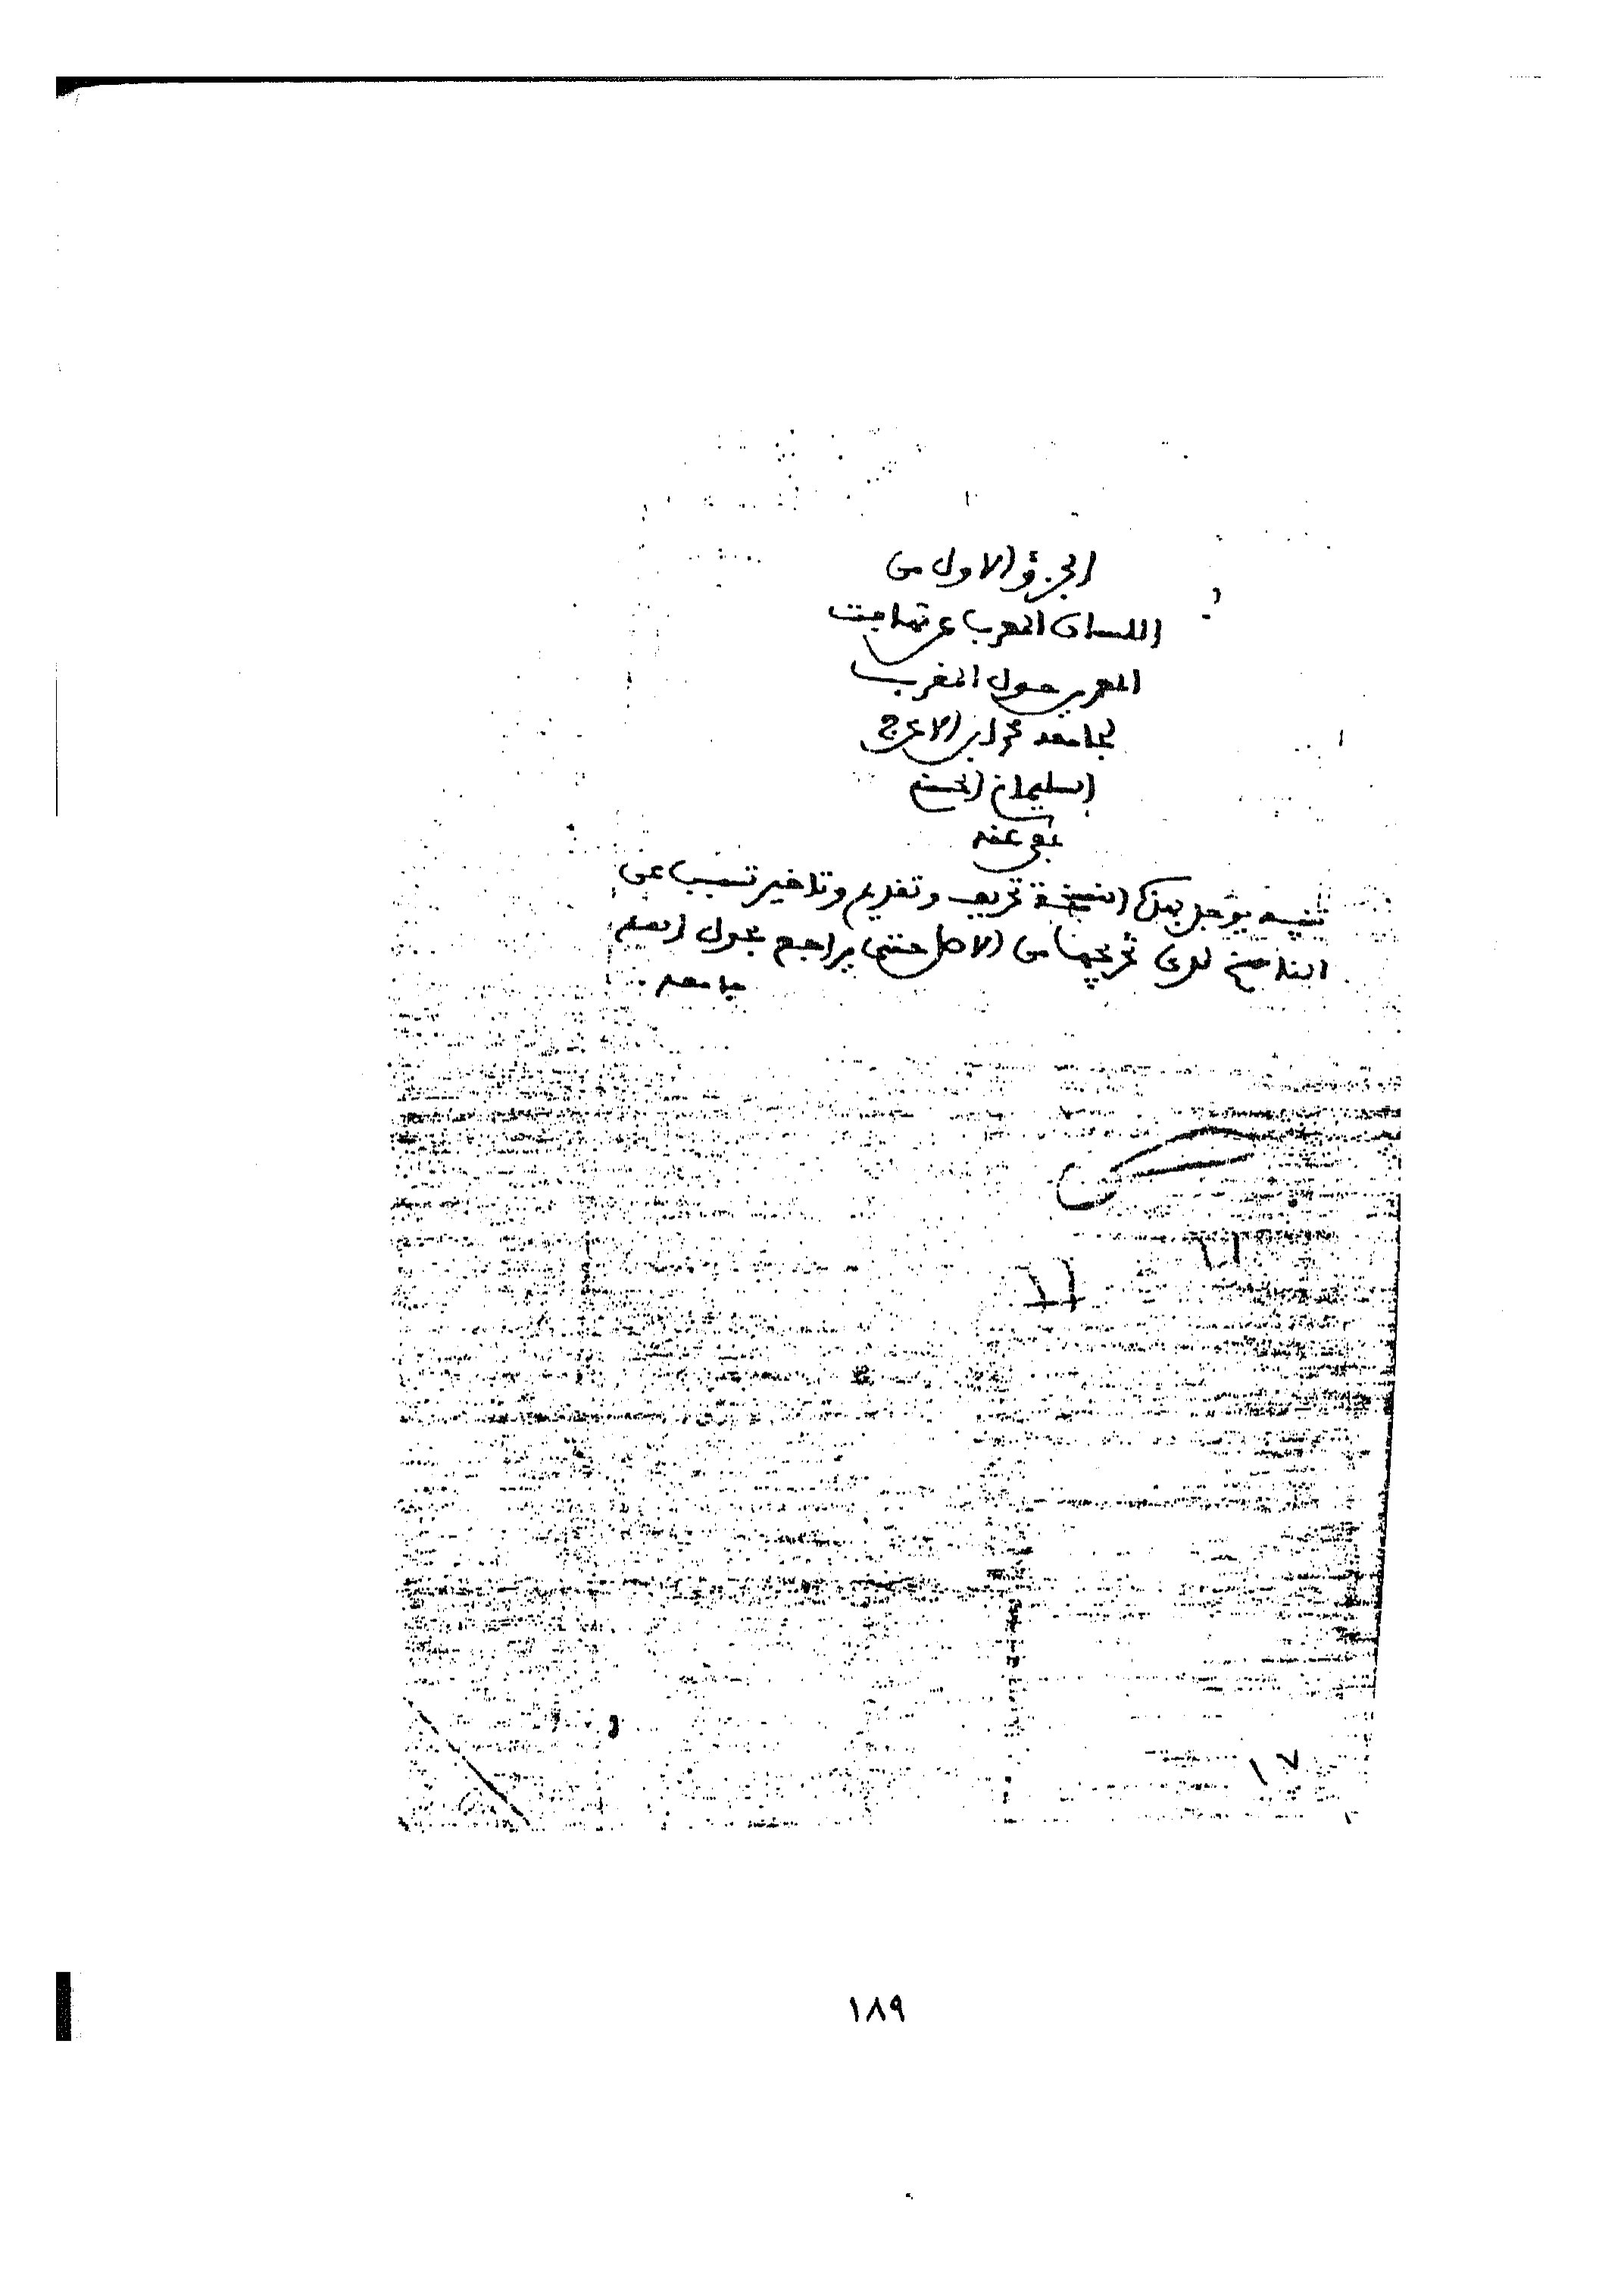 الجزؤ الاول من
اللسان المعرب عن تهافت
المعربي حول المغرب
لجامعه محمد ابن الاعرج
السليماني الحسني
عفي عنه
تنبيه يوجد بهذه النسخة تحريف وتقديم وتاخير تسبب عن
الناسخ لدى تخريجها من الاصل حتى يراجع بحول الله
جامعه
١٧
١٨٩